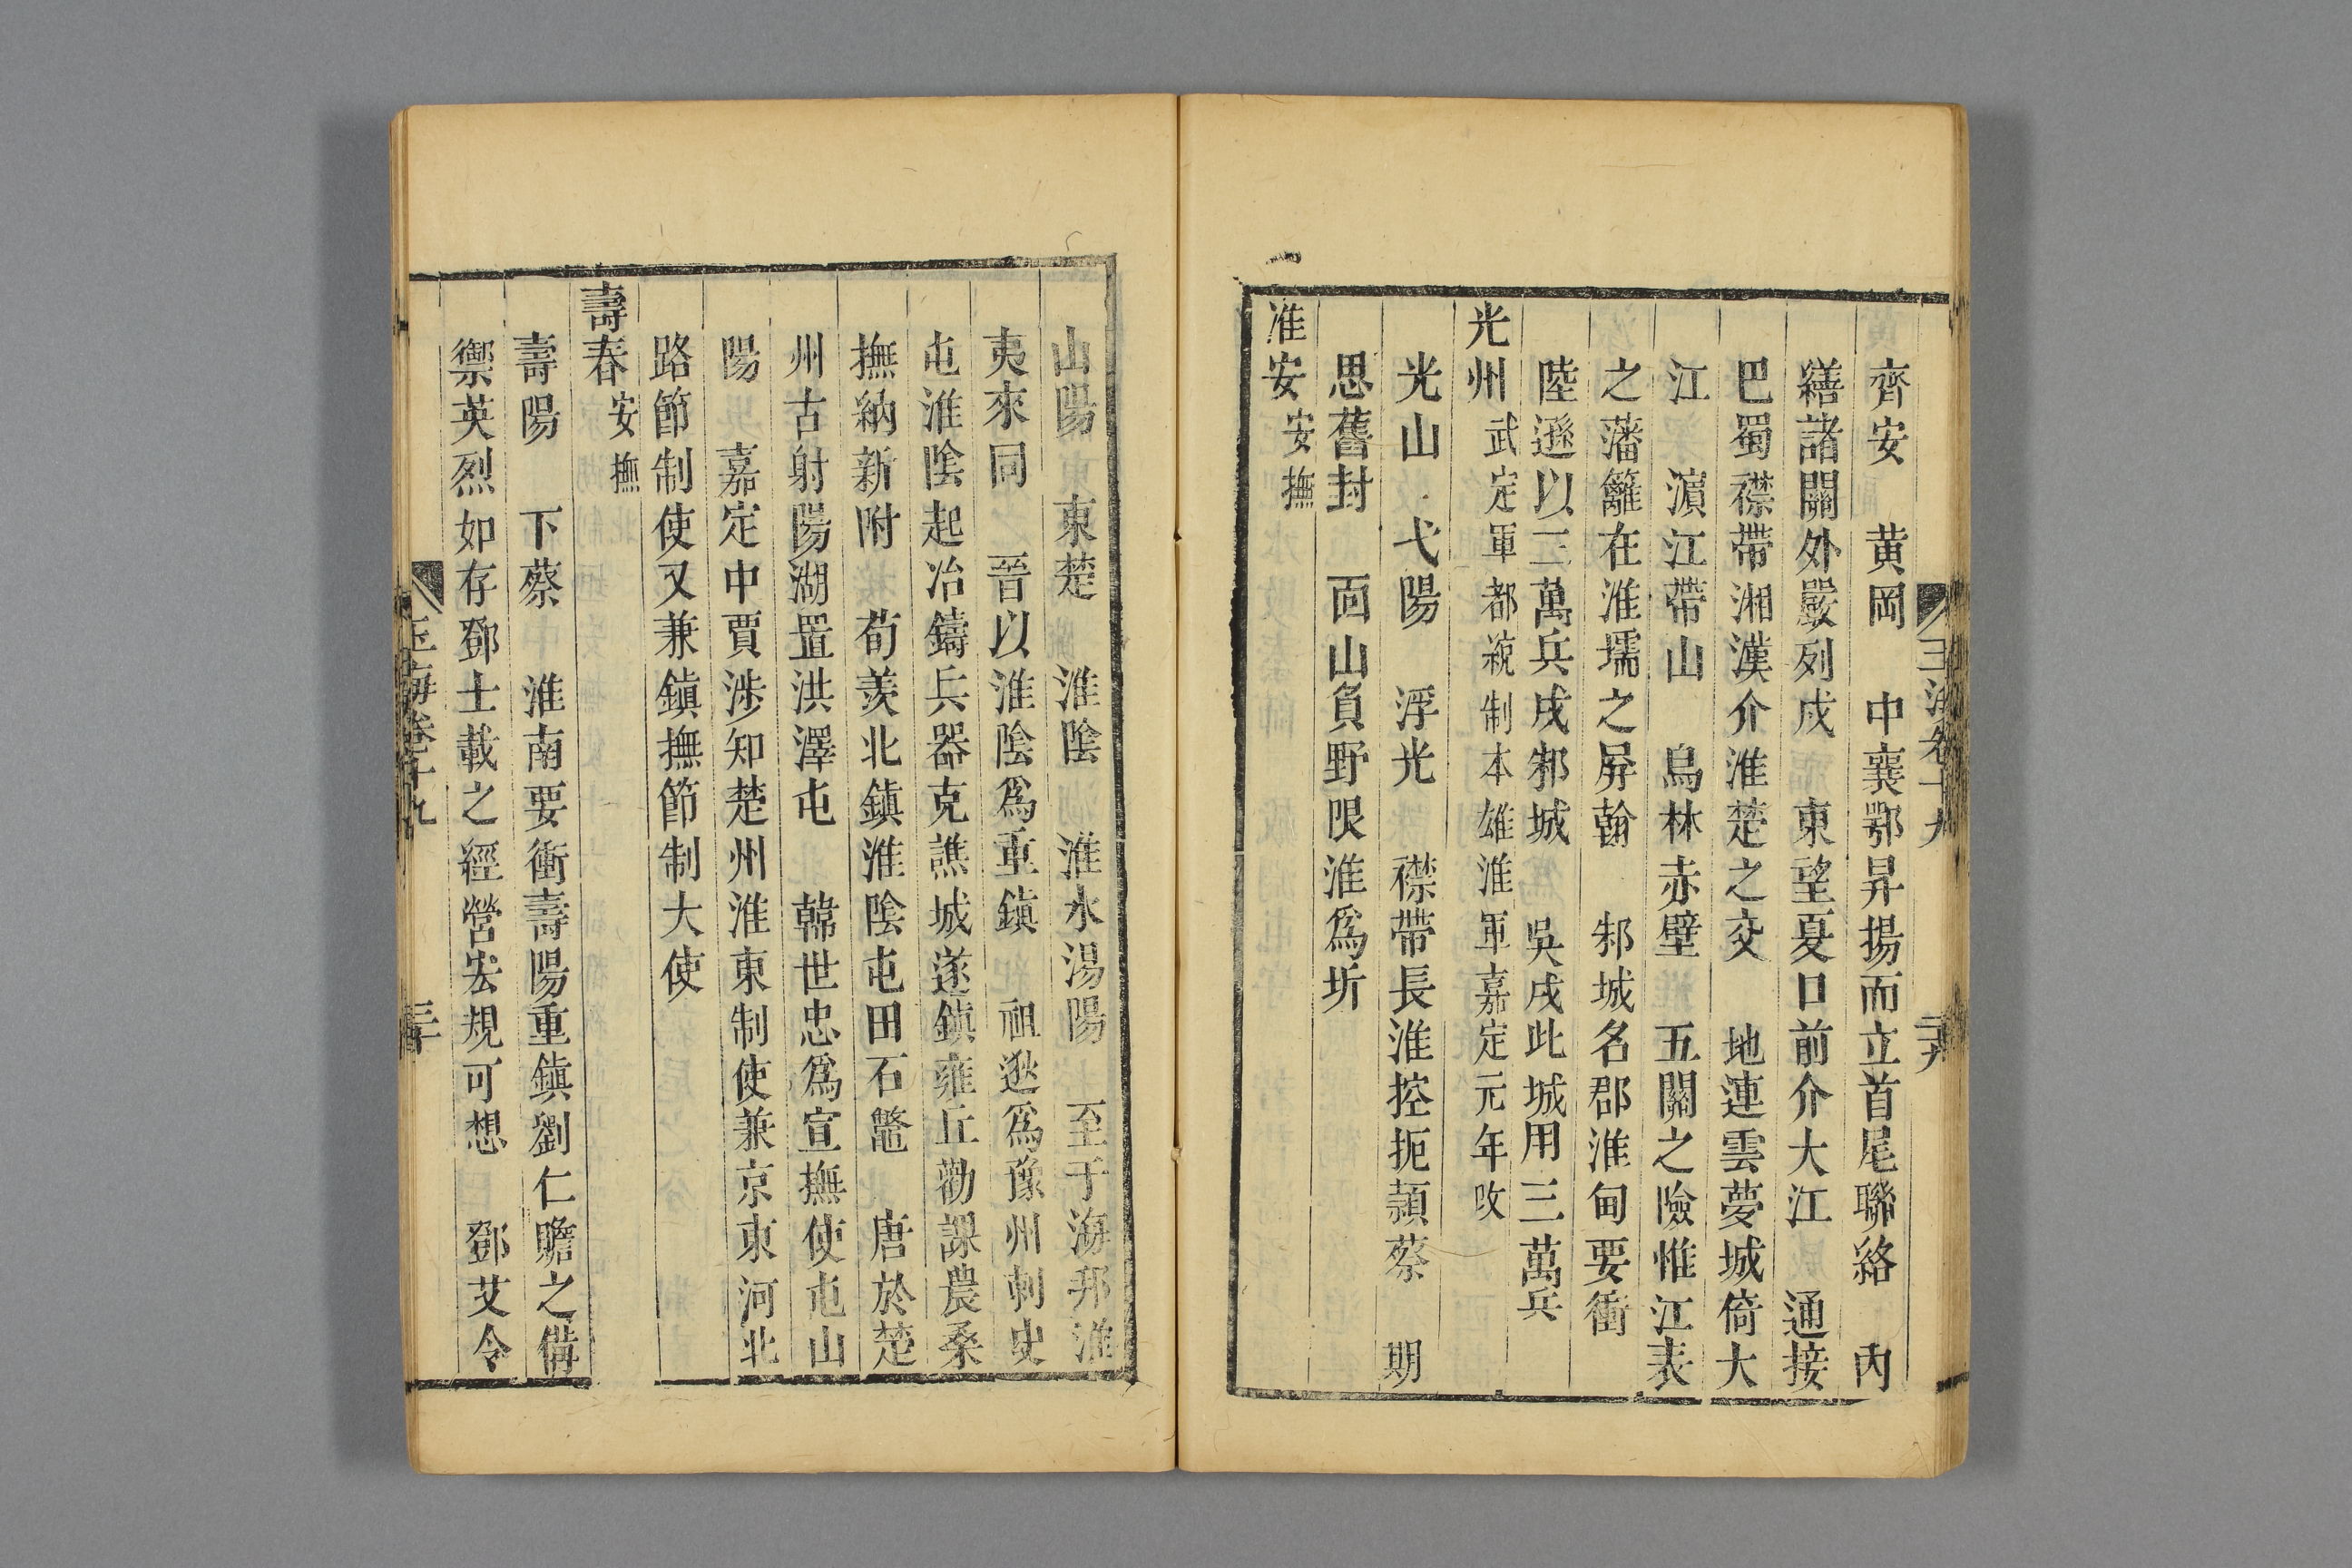 玉海卷十九 二十九
齊安 黄岡 中襄鄂昇揚而立首尾聯絡 内
繕諸關外嚴列戍 東望夏口前介大江 通接
巴蜀襟帶湘漢介淮楚之交 地連雲夢城倚大
江 濵江帶山 烏林赤壁 五關之險惟江表
之藩籬在淮壖之屏翰 邾城名郡淮甸要衝
陸遜以三萬兵戍邾城 吳戍此城用三萬兵
光州 武定軍都綂制本雄淮軍嘉定元年改
光山 弋陽 浮光 襟帶長淮控扼潁蔡 期
思舊封 面山負野限淮爲圻
淮安 安撫
山陽 東楚 淮陰 淮水湯陽 至于海邦淮
夷來同 晉以淮陰爲重鎮 祖逖爲豫州刺史
屯淮陰起冶鑄兵器克譙城遂鎮雍丘勸課農桑
撫納新附 荀羨北鎮淮陰屯田石鼈 唐於楚
州古射陽湖置洪澤屯 韓世忠爲宣撫使屯山
陽 嘉定中賈涉知楚州淮東制使兼京東河北
路節制使又兼鎮撫節制大使
壽春 安撫
壽陽 下蔡 淮南要衝壽陽重鎮劉仁贍之備
禦英烈如存鄧士載之經營宏規可想 鄧艾令
玉海卷十九 三十